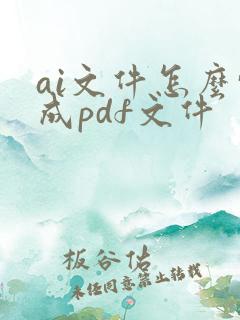 ai文件怎麼
成pdf文件
板谷佑
未经同意禁止转载